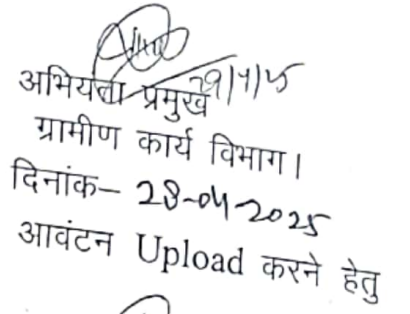 29/4/25
अभियन्ता प्रमुख
ग्रामीण कार्य विभाग।
दिनांक– 28-04-2025
आवंटन Upload करने हेतु